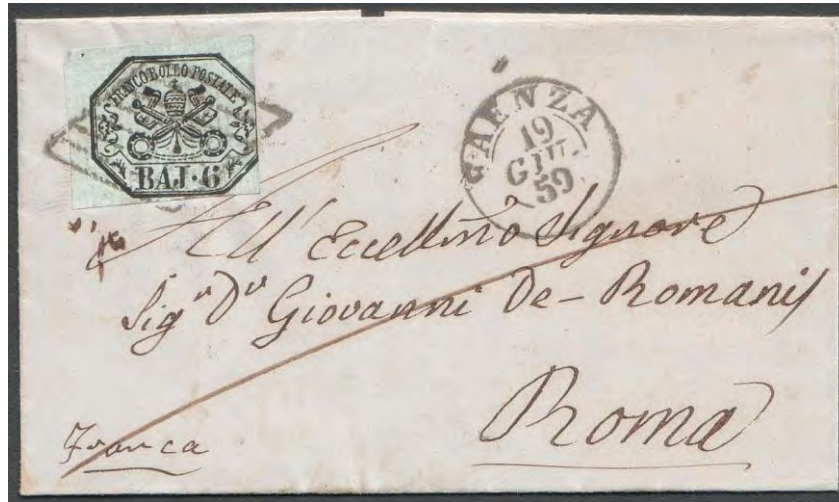 FRANCOBOLLO POSTALE
BAJ·6
FAENZA
19
GIU.
59
All' Eccellmo Signore
Sigr Dr Giovanni De-Romanis
Roma
Franca